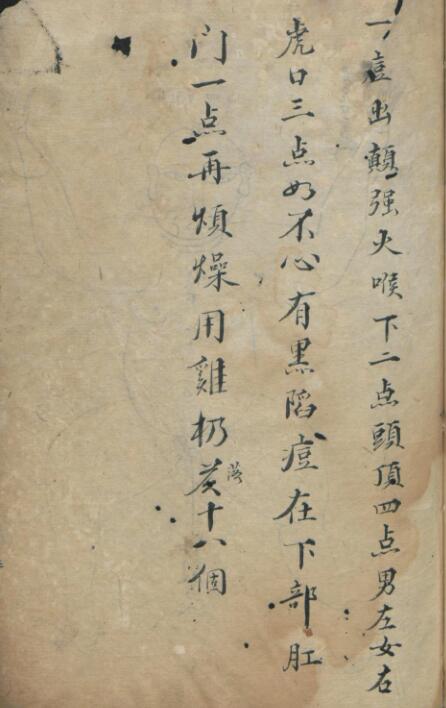 一痘出顛强火喉下二点頭頂四点男左女右
虎口三点如不心有黑陷痘在下部肛
门一点再煩燥用雞扔蒺十八個